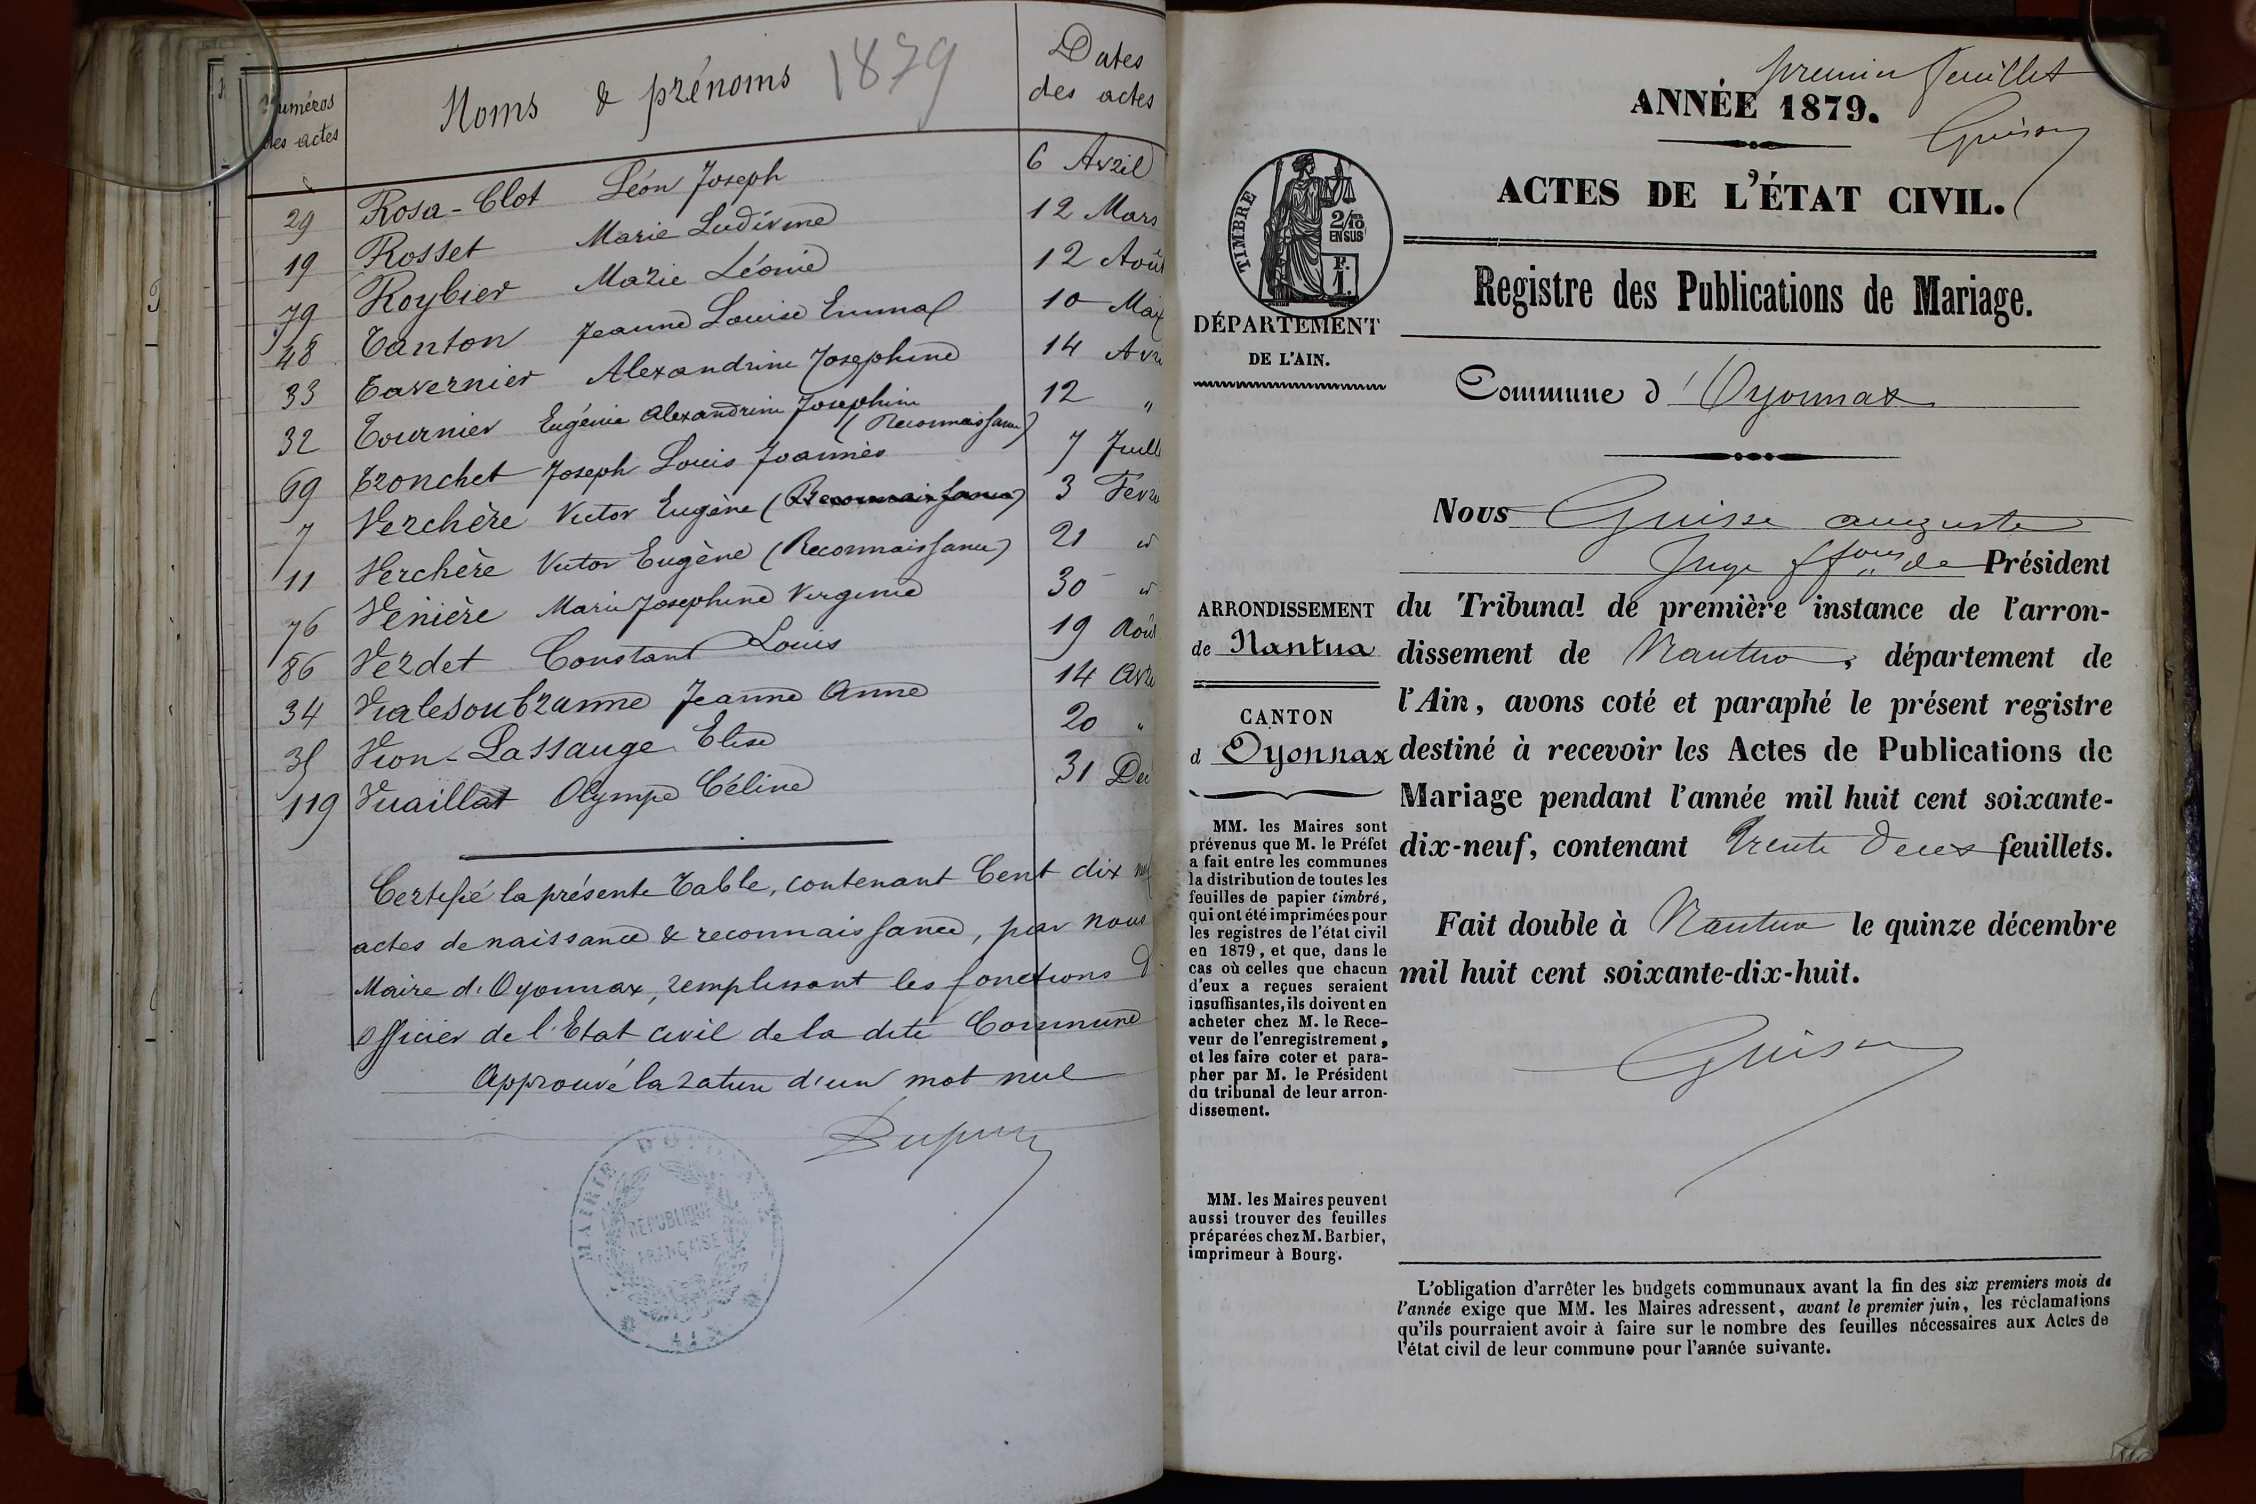 1879
Numéros des actes
Noms & prénoms
Dates des actes
29 Rosa-Clot Léon Joseph 6 Avril
19 Rosset Marie Ludivine 12 Mars
79 Roybier Marie Léonie 12 Août
48 Tanton Jeanne Louise Emma 10 Mai
33 Tavernier Alexandrine Josephine 14 Avri
32 Tournier Eugénie Alexandrine Josephine (Reconnaissance) 12 "
69 Tronchet Joseph Louis Joannès 7 Juill
7 Verchère Victor Eugène (Reconnaissance) 3 Févri
11 Verchère Victor Eugène (Reconnaissance) 21 id
76 Venière Marie Josephine Virginie 30 id
86 Verdet Constant Louis 19 Août
34 Vialesoubranne Jeanne Anne 14 Avri
35 Vion-Lassauge Elise 20 "
119 Vuaillat Olympe Céline 31 Dec
Certifié la présente Table, contenant Cent dix neuf
actes de naissance & reconnaissance, par nous
Maire d'Oyonnax, remplissant les fonctions d'
officier de l'Etat civil de la dite Commune
Approuvé la rature d'un mot nul
MAIRIE D'OYONNAX
RÉPUBLIQUE
FRANÇAISE
AIN
premier feuillet
ANNÉE 1879.
ACTES DE L'ÉTAT CIVIL.
TIMBRE
2/10
EN SUS
F.
1.
DÉPARTEMENT
DE L'AIN.
Registre des Publications de Mariage.
Commune d'Oyonnax
Nous Guison auguste
Juge ffons de Président
du Tribunal de première instance de l'arron-
dissement de Nantua, département de
l'Ain, avons coté et paraphé le présent registre
destiné à recevoir les Actes de Publications de
Mariage pendant l'année mil huit cent soixante-
dix-neuf, contenant Trente Deux feuillets.
Fait double à Nantua le quinze décembre
mil huit cent soixante-dix-huit.
ARRONDISSEMENT
de Nantua
CANTON
d Oyonnax
MM. les Maires sont
prévenus que M. le Préfet
a fait entre les communes
la distribution de toutes les
feuilles de papier timbré,
qui ont été imprimées pour
les registres de l'état civil
en 1879, et que, dans le
cas où celles que chacun
d'eux a reçues seraient
insuffisantes, ils doivent en
acheter chez M. le Rece-
veur de l'enregistrement,
et les faire coter et para-
pher par M. le Président
du tribunal de leur arron-
dissement.
MM. les Maires peuvent
aussi trouver des feuilles
préparées chez M. Barbier,
imprimeur à Bourg.
L'obligation d'arrêter les budgets communaux avant la fin des six premiers mois de
l'année exige que MM. les Maires adressent, avant le premier juin, les réclamations
qu'ils pourraient avoir à faire sur le nombre des feuilles nécessaires aux Actes de
l'état civil de leur commune pour l'année suivante.